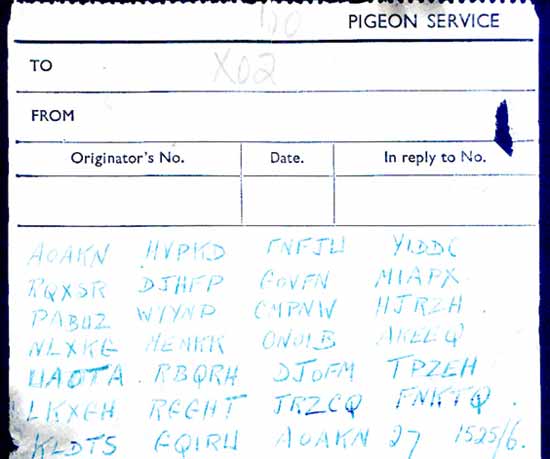 PIGEON SERVICE
TO X02
FROM
Originator's No. Date. In reply to No.
AOAKN HVPKD FNFJU YIDDC
RQXSR DJHFP GOVFN MIAPX
PABUZ WYYNP CMPNW HJRZH
NLXKG MEMKK ONOIB AKEEQ
UAOTA RBQRH DJOFM TPZEH
LKXGH RGGHT JRZCQ FNKTQ
KLDTS GQIRU AOAKN 27 1525/6.